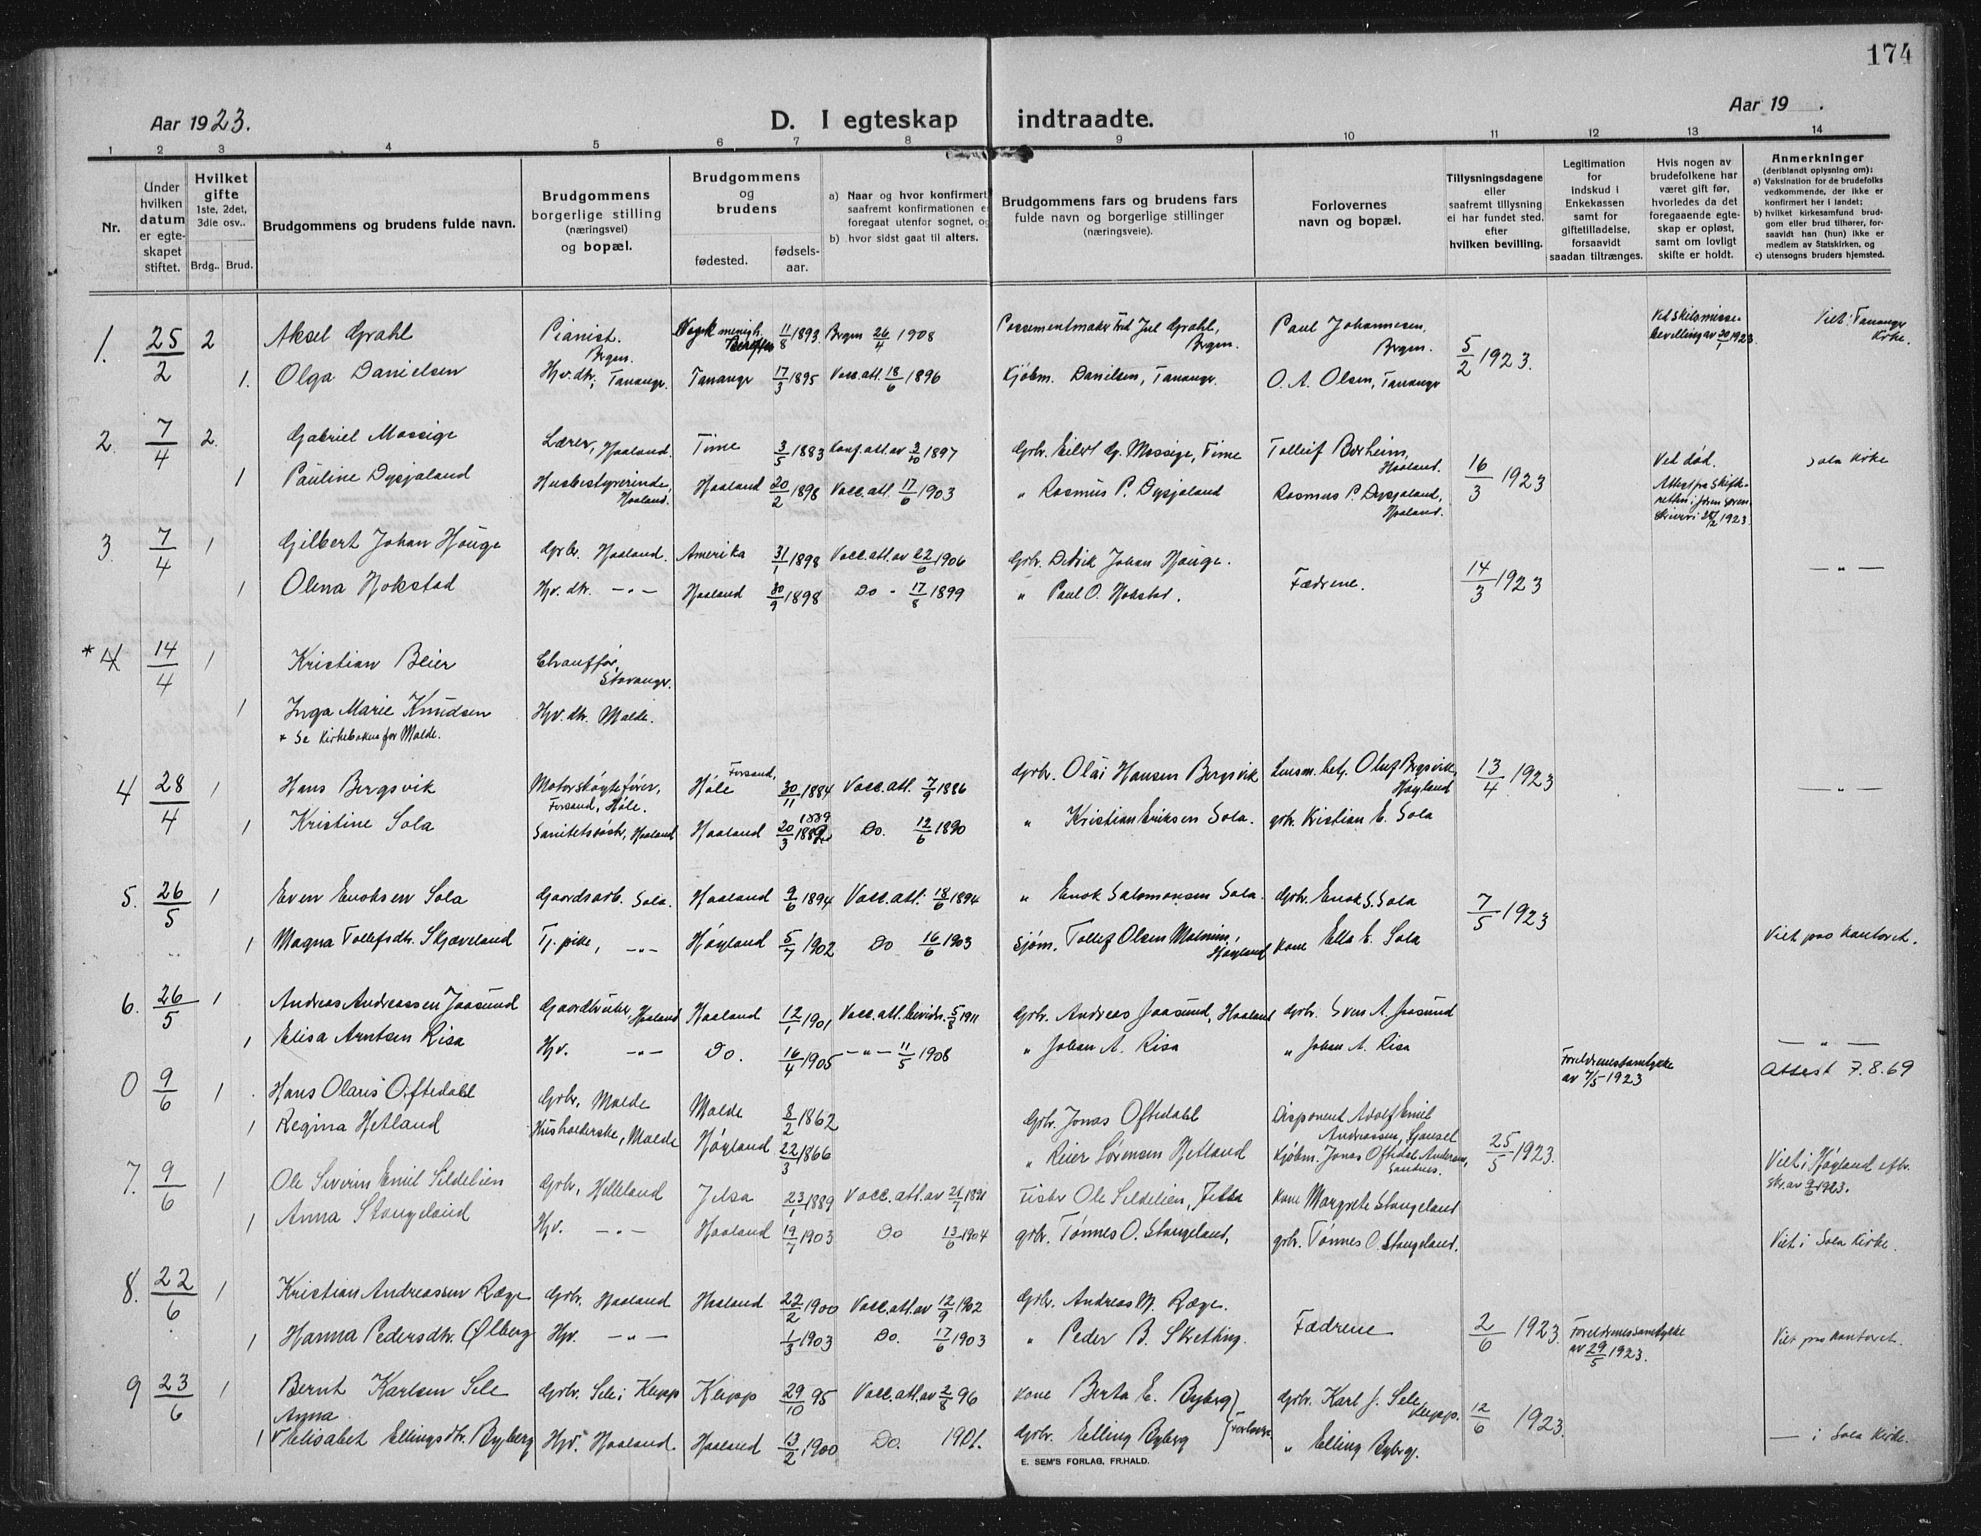 174
Aar 1923.
D. I egteskap indtraadte.
Aar 19 .
1 2 3 4 5 6 7 8 9 10 11 12 13 14
Nr.
Under hvilken datum er egteskapet stiftet.
Hvilket gifte
1ste, 2det, 3die osv..
Brdg.. Brud.
Brudgommens og brudens fulde navn.
Brudgommens borgerlige stilling (næringsvei) og bopæl.
Brudgommens og brudens
fødested.
fødselsaar.
a) Naar og hvor konfirmert
saafremt konfirmationen e
foregaat utenfor sognet, og
b) hvor sidst gaat til alters.
Brudgommens fars og brudens fars
fulde navn og borgerlige stillinger
(næringsveie).
Forlovernes
navn og bopæl.
Tillysningsdagene
eller
saafremt tillysning
ei har fundet sted.
efter
hvilken bevilling.
Legitimation
for
indskud i
Enkekassen
samt for
giftetilladelse,
forsaavidt
saadan tiltrænges.
Hvis nogen av
brudefolkene har
været gift før,
hvorledes da det
foregaaende egteskap er opløst,
samt om lovligt
skifte er holdt.
Anmerkninger
(deriblandt oplysning om):
a) Vaksination for de brudefolks
vedkommende, der ikke er
konfirmert her i landet;
b) hvilket kirkesamfund brudgom eller brud tilhører, forsaavidt han (hun) ikke er
medlem av Statskirken, og
c) utensogns bruders hjemsted.
1. 25/2 2 Aksel Grahl Pianist. Bergen. 11/8 1893 Bergen 26/4 1908 Jul Grahl, Bergen. Paul Johannesen, Bergen. 5/2 1923. Ved skilsmisse bevilling av 20/1 1923 Viet i Tananger Kirke.
1. Olga Danielsen Hjv. dtr, Tananger. Tananger 17/3 1895 Vacc. att. 18/6 1896 Kjøbm. Danielsen, Tananger. O. A. Olsen, Tananger
2. 7/4 2. Gabriel Mossige Lærer, Haaland. Time 3/5 1883 Konf. att. av 3/10 1897 Grbr. Eilert G. Mossige, Time Tollef Borheim, Haaland. 16/3 1923 Ved død. Attest fra skifteretten i Jæren Sorenskriveri 1923 Sola Kirke
1 Pauline Dysjaland Husbestyrerinde, Haaland. Haaland 20/2 1898 Vacc. att. 17/6 1903 " Rasmus P. Dysjaland Rasmus P. Dysjaland, Haaland.
3 7/4 1 Gilbert Johan Hauge Grbr. Haaland. Amerika 31/1 1898 Vacc. att. av 22/6 1906 Grbr. Didrik Johan Hauge. Fædrene. 14/3 1923 — " —
1 Olena Hokstad Hjv. dtr. — " — Haaland 30/9 1898 Do - 17/8 1899 " Paul O. Hokstad.
*4 14/4 1 Kristian Beier Chauffør, Stavanger.
1 Inga Marie Knudsen Hjv. dtr. Malde.
* Se Kirkeboken for Malde.
4 28/4 1 Hans Bergsvik Motorskøytefører, Forsand, Høle. Forsand, Høle 30/11 1884 Vacc. att. 7/9 1886 Grbr. Olai Hansen Bergsvik Lensm. betj. Oluf Bergsvik, Høyland 13/4 1923 — " —
1 Kristine Sola Sanitetssøst., Haaland Haaland 20/3 1889 Do. 12/6 1890 " Kristian Eriksen Sola. grbr. Kristian E. Sola
5. 26/5 1 Even Enoksen Sola Gaardsarb. Sola. Haaland 9/6 1894 Vacc. att. 18/6 1894 " Enok Salomonsen Sola. Grbr. Enok S. Sola 7/5 1923
1 Magna Tollefsdtr. Skjæveland Tj. pike, — " — Høyland 5/7 1902 Do 16/6 1903 Sjøm. Tollef Olsen Høyland Kone Ella E. Sola Viet paa kontoret.
6. 26/5 1 Andreas Andreassen Jaasund Gaardbruker, Haaland Haaland 12/1 1901 Vacc. att. 5/8 1911 Grbr. Andreas Jaasund, Haaland Grbr. Sven A. Jaasund
1 Elisa Arntsen Risa Hjv. — " — Do. 16/4 1905 — " — 11/5 1908 " Johan A. Risa " Johan A. Risa Foreldrenes samtykke av 7/5 1923 — " —
0 9/6 1 Hans Olaus Oftedahl Grbr, Malde Malde 8/2 1862 Grbr. Jonas Oftedahl Disponent Adolf Emil Andreassen, 25/5 1923. Attest 7.8.69
1 Regina Hetland Husholderske, Malde Høyland 22/3 1866 " Reier Sørensen Hetland Kjøbm. Jonas Oftedal Andersen, Sandnes. Viet i Høyland eftr. skr. av 9/6 1923.
7. 9/6 1 Ole Severin Emil Sildelien Grbr, Helleland Jelsa 23/1 1889 Vacc. att. av 21/7 1891 Fisker Ole Sildelien, Jelsa Kone Margrete Stangeland
1 Anna Stangeland Hjv. — " — Haaland 19/7 1903 Do 13/6 1904 grbr. Tønnes O. Stangeland, grbr. Tønnes O. Stangeland. Viet i Sola Kirke.
8. 22/6 1 Kristian Andreassen Ræge Grbr, Haaland Haaland 22/2 1900 Vacc. att. av 12/9 1902 Grbr. Andreas M. Ræge. Fædrene 2/6 1923. Foreldrenes samtykke av 29/5 1923.
1 Hanna Pedersdtr. Ølberg Hjv. — " — 1/3 1903 Do. 17/6 1903 " Peder B. Skretting. Viet paa kontoret.
9 23/6 1 Bernt Karlsen Sele Grbr. Sele i Klepp Klepp 29/10 95 Vacc. att. av 2/8 96 Kone Berta E. Byberg Grbr. Karl J. Sele, Klepp. 12/6 1923.
Anna
1 Elisabet Ellingsdtr. Byberg Hjv. Haaland. Haaland 13/2 1900 Do. 1901. Grbr. Elling Byberg } Forlovere " Elling Byberg. — i Sola Kirke.
E. SEM'S FORLAG, FR.HALD.